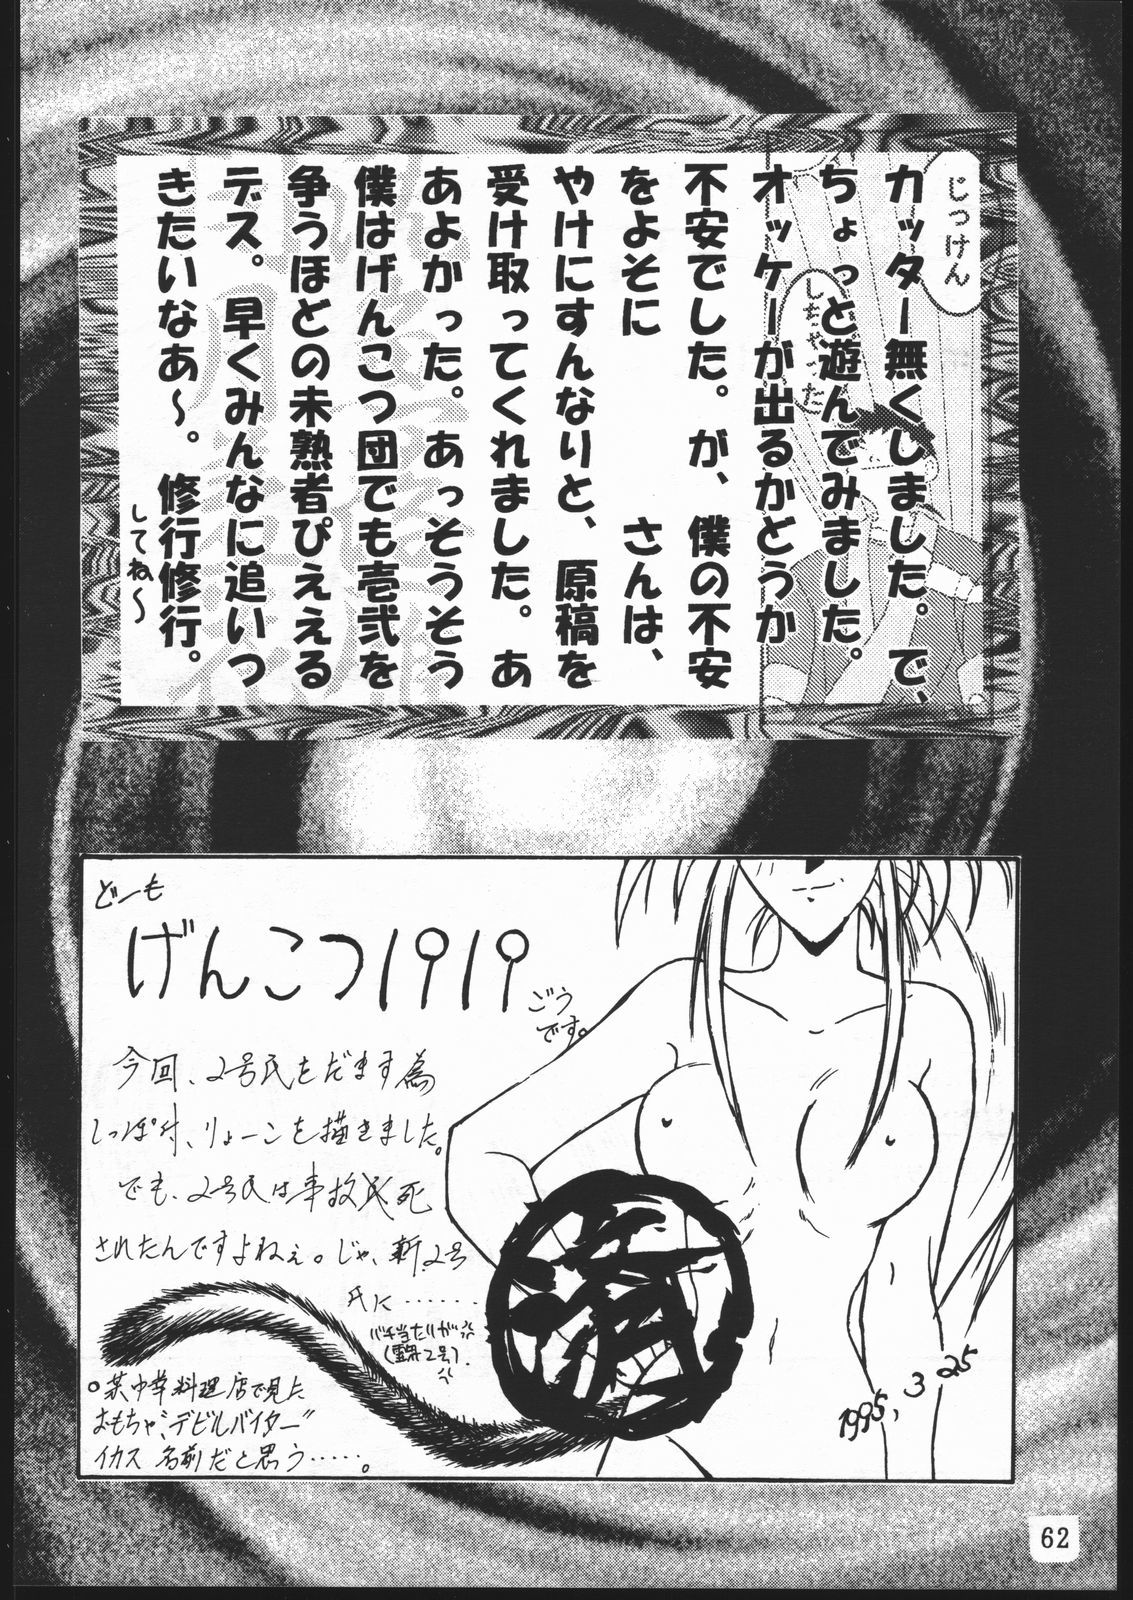 じっけん
しちゃった
カッター無くしました。で、
ちょっと遊んでみました。
オッケーが出るかどうか
不安でした。が、僕の不安
をよそに　　　さんは、
やけにすんなりと、原稿を
受け取ってくれました。あ
あよかった。あっそうそう
僕はげんこつ団でも壱弐を
争うほどの未熟者ぴええる
デス。早くみんなに追いつ
きたいなあ〜。修行修行。
してね〜
どーも
げんこつ1919
ごう
です。
今回、2号氏をだます為
しっぽ付、りょーこを描きました。
でも、2号氏は事故死
されたんですよねぇ。じゃ、新2号
氏に……
バチ当たりが
済
。某中華料理店で見た
おもちゃ“デビルバイター”
イカス名前だと思う……。
1995, 3 25
62